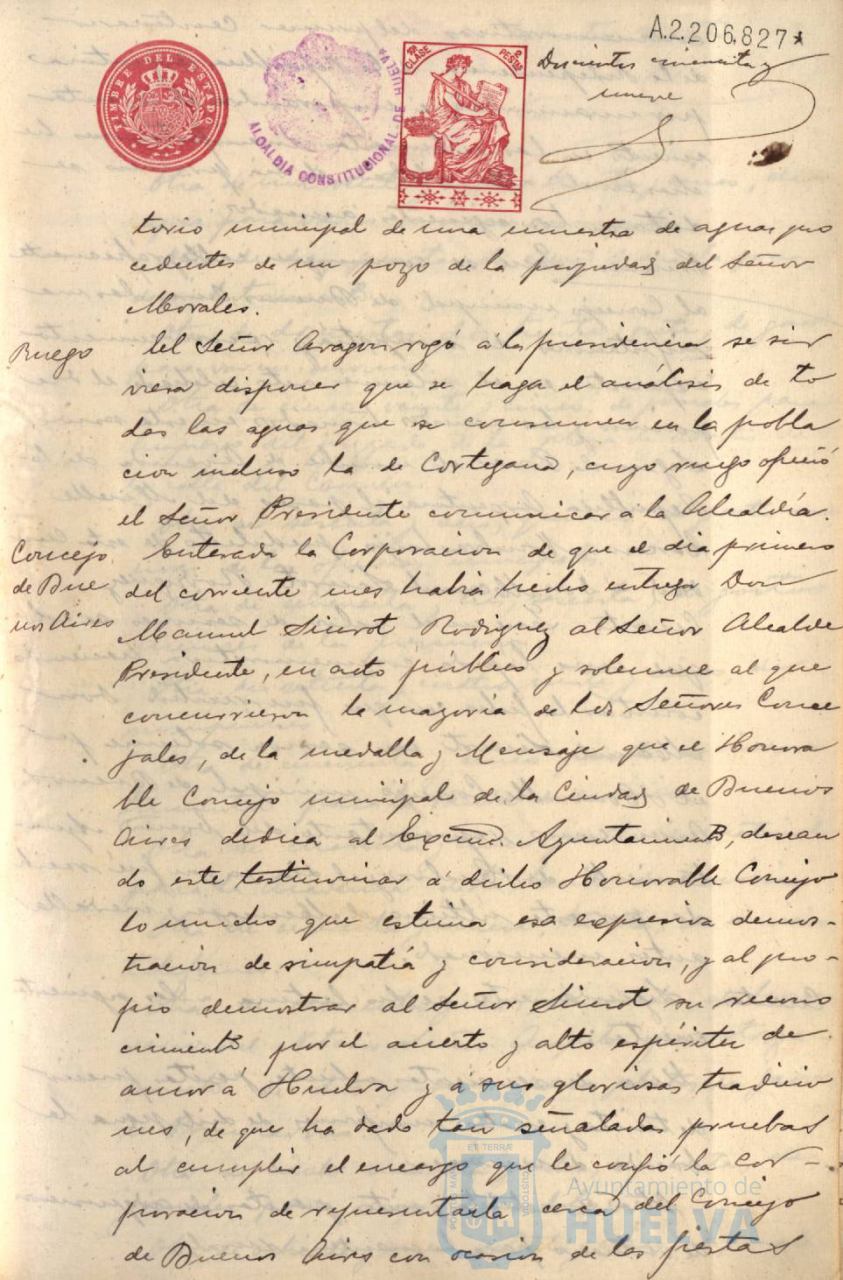 A.2.206.827*
TIMBRE DEL ESTADO
ALCALDIA CONSTITUCIONAL DE HUELVA
CLASE
2 PESTAS
Doscientos cincuenta y
nueve
torio municipal de una muestra de aguas pro
cedentes de un pozo de la propiedad del Señor
Morales.
Ruego
El Señor Aragon rogó á la presidencia se sir
viera disponer que se haga el análisis de to
das las aguas que se consumen en la pobla
cion incluso la de Cortegana, cuyo ruego ofreció
el Señor Presidente comunicar á la Alcaldía.
Concejo
de Bue
nos Aires
Enterada la Corporacion de que el dia primero
del corriente mes habia hecho entrega Don
Manuel Siurot Rodriguez al Señor Alcalde
Presidente, en acto público y solemne al que
concurrieron la mayoria de los Señores Conce
jales, de la medalla y Mensaje que el Honora
ble Concejo municipal de la Ciudad de Buenos
Aires dedica al Excmo. Ayuntamiento, desean
do este testimoniar á dicho Honorable Concejo
lo mucho que estima esa expresiva demos-
tracion de simpatía y consideracion, y al pro-
pio demostrar al Señor Siurot su recono
cimiento por el acierto y alto espíritu de
amor á Huelva y á sus gloriosas tradicio
nes, de que ha dado tan señaladas pruebas
al cumplir el encargo que le confió la Cor-
poracion de representarla cerca del Concejo
de Buenos Aires con ocasion de las fiestas
ET TERRÆ
Ayuntamiento de
HUELVA